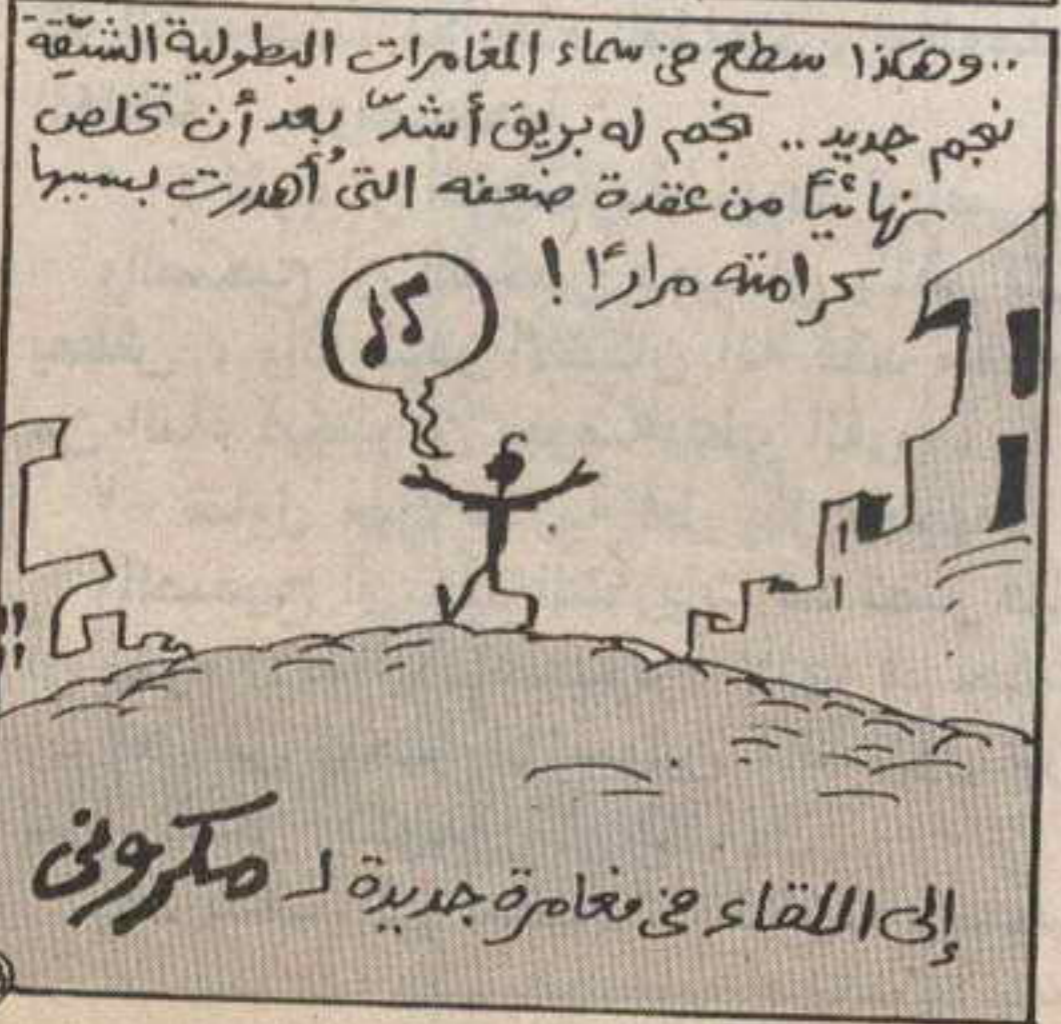 ..وهكذا سطع في سماء المغامرات البطولية الشيّقة
نجم جديد.. نجم له بريق أشدّ بعد أن تخلص
نهائيًا من عقدة ضعفه التي أُهدرت بسببها
كرامته مرارًا !
إلى اللقاء في مغامرة جديدة لـ مكروني